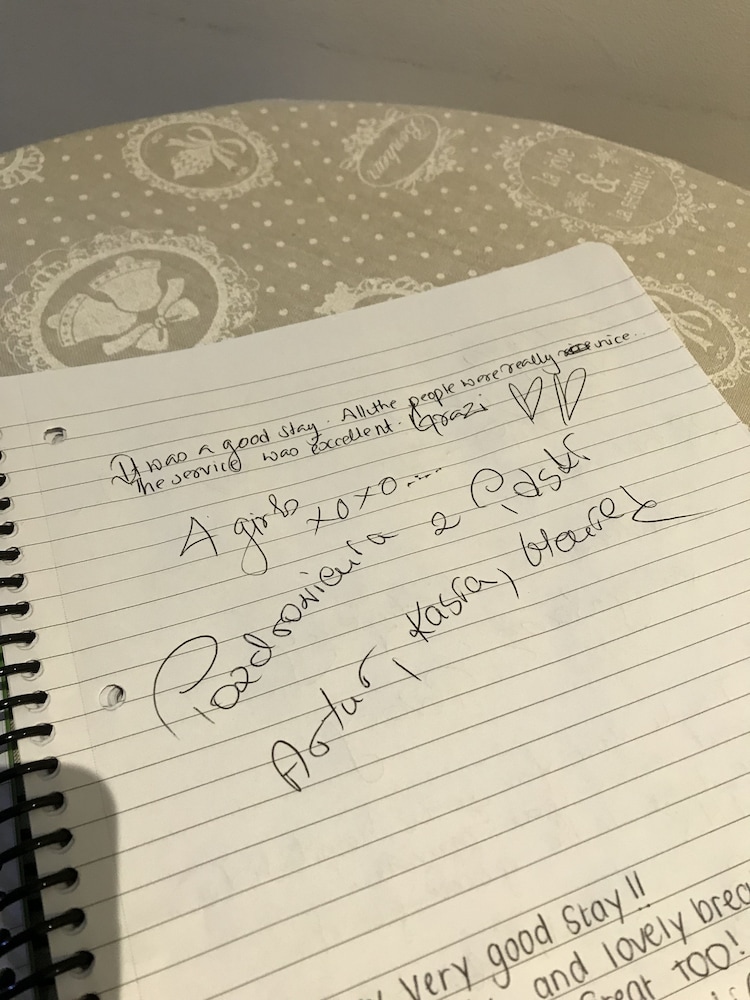 Bonheur
la joie
&
la sérénité
It was a good stay. All the people were really nice...
the service was excellent. Grazi
A girls xoxo....
Pozdrowienia z Polski
Artur, Kasia,
very good stay!!
and lovely brea
great TOO!